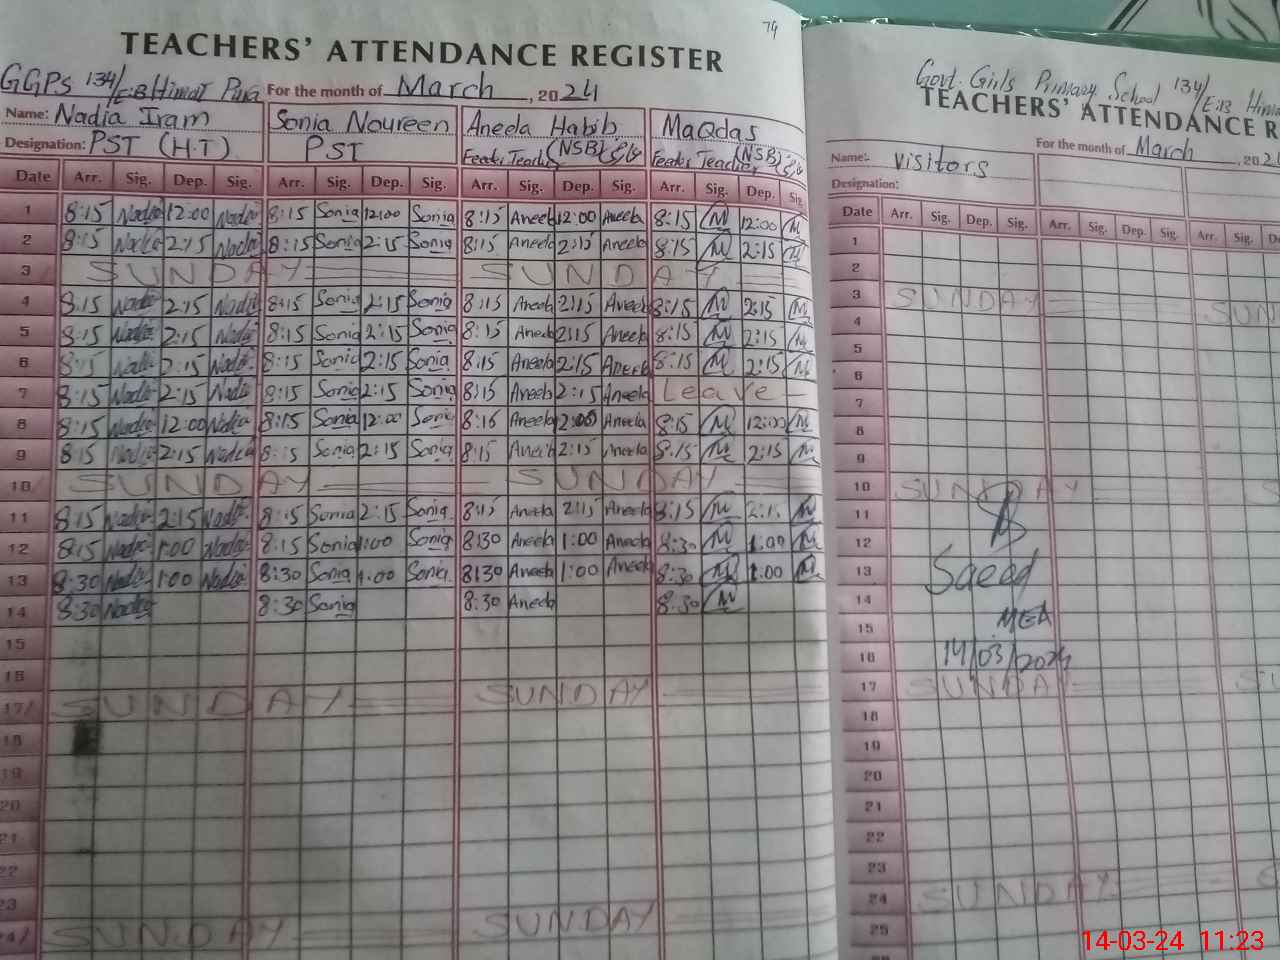 79
TEACHERS' ATTENDANCE REGISTER
GGPS 134/E.B Himat Pura For the month of March, 2024
Name: Nadia Iram Sonia Noureen Aneela Habib Maqdas
Designation: PST (H.T) PST Feeder Teacher (NSB) Feeder Teacher (NSB)
Date Arr. Sig. Dep. Sig. Arr. Sig. Dep. Sig. Arr. Sig. Dep. Sig. Arr. Sig. Dep. Sig.
1 8:15 Nadia 12:00 Nadia 8:15 Sonia 12:00 Sonia 8:15 Aneela 12:00 Aneela 8:15 M 12:00 M
2 8:15 Nadia 2:15 Nadia 8:15 Sonia 2:15 Sonia 8:15 Aneela 2:15 Aneela 8:15 M 2:15 M
3 SUNDAY SUNDAY
4 8:15 Nadia 2:15 Nadia 8:15 Sonia 2:15 Sonia 8:15 Aneela 2:15 Aneela 8:15 M 2:15 M
5 8:15 Nadia 2:15 Nadia 8:15 Sonia 2:15 Sonia 8:15 Aneela 2:15 Aneela 8:15 M 2:15 M
6 8:15 Nadia 2:15 Nadia 8:15 Sonia 2:15 Sonia 8:15 Aneela 2:15 Aneela 8:15 M 2:15 M
7 8:15 Nadia 2:15 Nadia 8:15 Sonia 2:15 Sonia 8:15 Aneela 2:15 Aneela Leave
8 8:15 Nadia 12:00 Nadia 8:15 Sonia 12:00 Sonia 8:15 Aneela Aneela 8:15 M 12:00 M
9 8:15 Nadia 2:15 Nadia 8:15 Sonia 2:15 Sonia 8:15 Aneela 2:15 Aneela 8:15 M 2:15 M
10 SUNDAY SUNDAY
11 8:15 Nadia 2:15 Nadia 8:15 Sonia 2:15 Sonia 8:15 Aneela 2:15 Aneela 8:15 M 2:15 M
12 8:15 Nadia 1:00 Nadia 8:15 Sonia 1:00 Sonia 8:30 Aneela 1:00 Aneela 8:30 M 1:00 M
13 8:30 Nadia 1:00 Nadia 8:30 Sonia 1:00 Sonia 8:30 Aneela 1:00 Aneela 8:30 M 1:00 M
14 8:30 Nadia 8:30 Sonia 8:30 Aneela 8:30 M
15
16
17 SUNDAY SUNDAY
18
19
20
21
22
23
24 SUNDAY SUNDAY
Govt. Girls Primary School 134/E.B
TEACHERS' ATTENDANCE
For the month of March, 20
Name:- Visitors
Designation:
Date Arr. Sig. Dep. Sig. Arr. Sig. Dep. Sig. Arr. Sig.
1
2
3 SUNDAY SUN
4
5
6
7
8
9
10 SUNDAY S
11
12
13 Saeed
14
15 MEA
16 14/03/2024
17 SUNDAY SU
18
19
20
21
22
23
24 SUNDAY
25
14-03-24 11:23